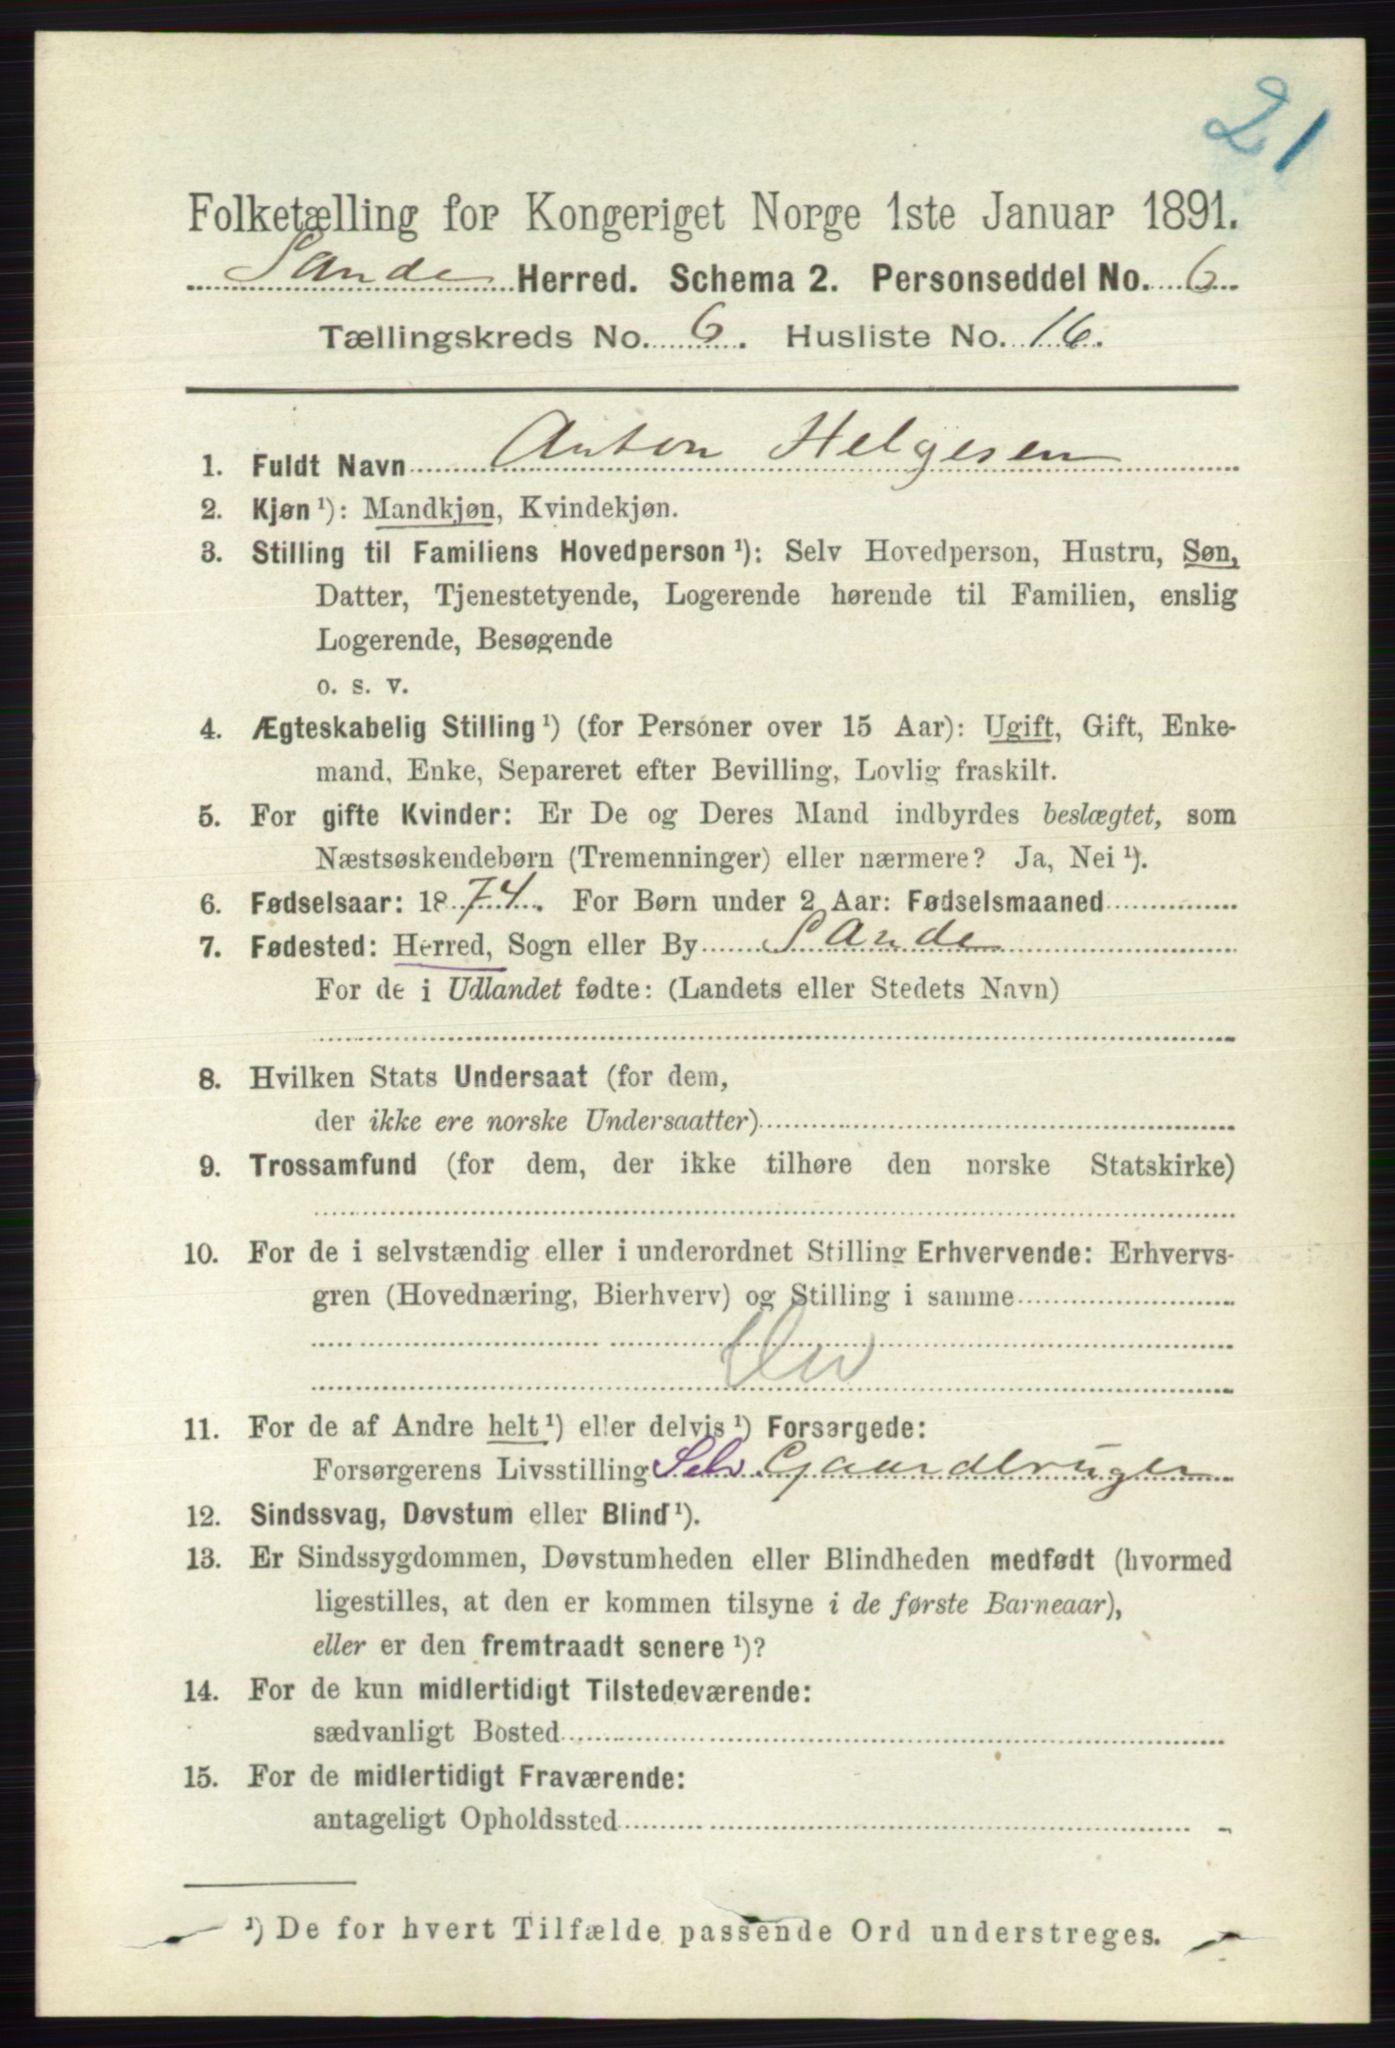 21
Folketælling for Kongeriget Norge 1ste Januar 1891.
Sande Herred. Schema 2. Personseddel No. 6
Tællingskreds No. 6. Husliste No. 16.
1. Fuldt Navn Anton Helgesen
2. Kjøn ¹): Mandkjøn, Kvindekjøn.
3. Stilling til Familiens Hovedperson ¹): Selv Hovedperson, Hustru, Søn,
Datter, Tjenestetyende, Logerende hørende til Familien, enslig
Logerende, Besøgende
o. s. v.
4. Ægteskabelig Stilling ¹) (for Personer over 15 Aar): Ugift, Gift, Enke-
mand, Enke, Separeret efter Bevilling, Lovlig fraskilt.
5. For gifte Kvinder: Er De og Deres Mand indbyrdes beslægtet, som
Næstsøskendebørn (Tremenninger) eller nærmere? Ja, Nei ¹).
6. Fødselsaar: 1874. For Børn under 2 Aar: Fødselsmaaned
7. Fødested: Herred, Sogn eller By Sande
For de i Udlandet fødte: (Landets eller Stedets Navn)
8. Hvilken Stats Undersaat (for dem,
der ikke ere norske Undersaatter)
9. Trossamfund (for dem, der ikke tilhøre den norske Statskirke)
10. For de i selvstændig eller i underordnet Stilling Erhvervende: Erhvervs-
gren (Hovednæring, Bierhverv) og Stilling i samme
11. For de af Andre helt ¹) eller delvis ¹) Forsørgede:
Forsørgerens Livsstilling Selv. Gaardbruger
12. Sindssvag, Døvstum eller Blind ¹).
13. Er Sindssygdommen, Døvstumheden eller Blindheden medfødt (hvormed
ligestilles, at den er kommen tilsyne i de første Barneaar),
eller er den fremtraadt senere ¹)?
14. For de kun midlertidigt Tilstedeværende:
sædvanligt Bosted
15. For de midlertidigt Fraværende:
antageligt Opholdssted
¹) De for hvert Tilfælde passende Ord understreges.